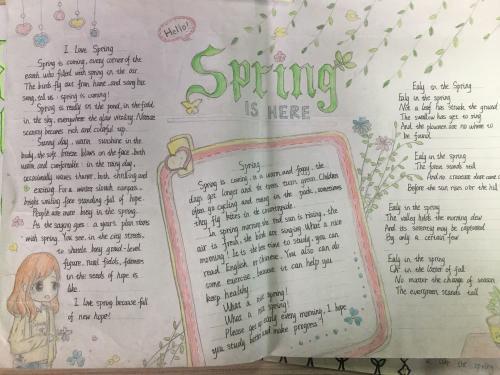 Hello!
Spring
IS HERE
I Love Spring
Spring is coming, every corner of the
earth was filled with spring in the air.
The birds fly out from home, and sang her
song, tell us: spring is coming!
Spring is really in the pond, in the field,
in the sky, everywhere the glow vitality. Nature
scenery becomes rich and colorful up.
Sunny day, warm sunshine in the
body, the safe breeze blows on the face, both
warm and comfortable; in the rainy day,
occasionally waves thunder, both shrilling and
exciting. For a winter starch canvas,
bright smiling face standing full of hope.
People are more busy in the spring.
As the saying goes: a year's plan starts
with spring. You see, in the city streets,
to shuttle busy
figure, rural fields, farmers
in the seeds of hope is
like.
I love spring because full
of new hope!
Spring
Spring is coming, it is warm and foggy, the
days get longer and the trees turn green. Children
often go cycling and swing in the park, sometimes
they fly kites in the countryside.
In spring morning, the red sun is rising, the
air is fresh, the birds are singing. What a nice
morning! It is the best time to study, you can
read English or Chinese. You also can do
some exercise, because it can help you
keep healthy.
What a nice spring!
What a nice spring!
Please get up early every morning, I hope
you study better and make progress!
Ealy in the Spring
Ealy in the spring
Not a leaf has struck the ground
The swallow has yet to sing
And the flowers are no where to
be found
Ealy in the spring
The forse stands tall
And no creature dare come
Before the sun rises over the hill
Ealy in the spring
The valley holds the morning dew
And its scenery may be captured
By only a certain few
Ealy in the spring
Or in the latter of fall
No matter the change of season
The evergreen stands tall
the spring